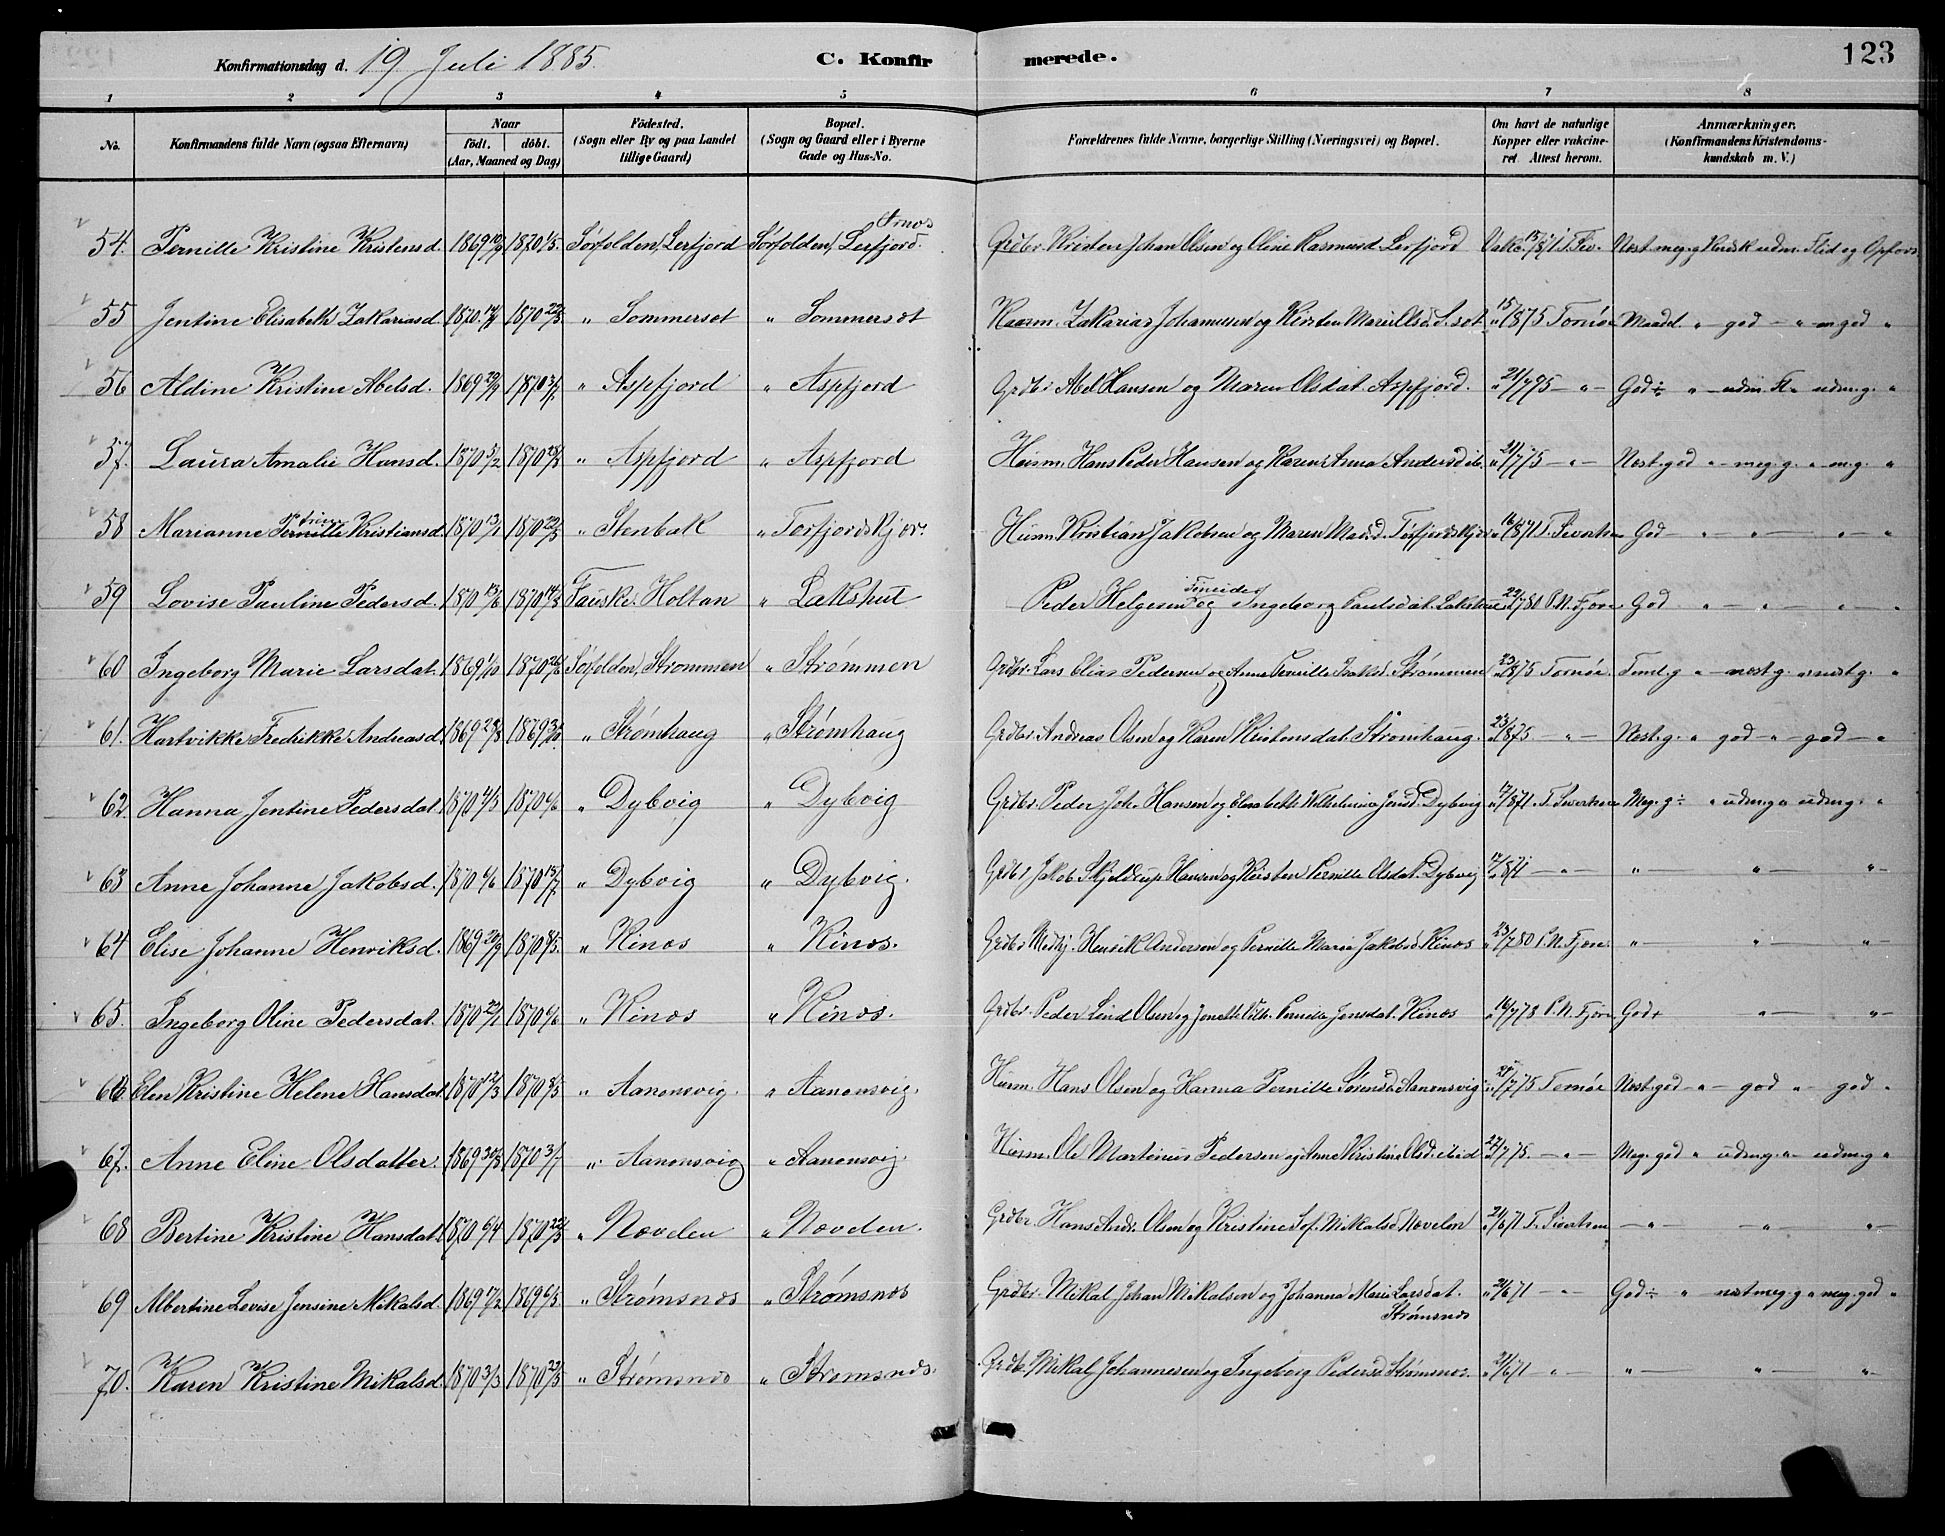 Konfirmationsdag d. 19 Juli 1885. C. Konfirmerede. 123
1 2 3 4 5 6 7 8
No. Konfirmandens fulde Navn (ogsaa Efternavn) Naar født. døbt. (Aar, Maaned og Dag) Fødested. (Sogn eller By og paa Landet tillige Gaard) Bopæl. (Sogn og Gaard eller i Byerne Gade og Hus-No. Forældrenes fulde Navne, borgerlige Stilling (Næringsvei) og Bopæl. Om havt de naturlige Kopper eller vakcineret. Attest herom. Anmærkninger. (Konfirmandens Kristendomskundskab m. V.)
54. Pernille Kristine Kristensd. 1869 1870 1/5 Sørfolden, Lerfjord Sørfolden, Lerfjord. Grdbr. Kristen Johan Olsen og Oline Rasmusd. Lerfjord
55 Jentine Elisabeth Zakariasd. 1870 1870 " Sommerset " Sommerset Zakarias Johannesen og Kirsten S.set " 15/875 Tornøe
56 Aldine Kristine Abelsd. 1869 29/9 1870 3/7 " Aspfjord " Aspfjord Grdbr. Abel Hansen og Maren Olsdat. Aspfjord. " 21/795 — " — God ÷ " — udm. Fl " udm. g. "
57. Laura Amalie Hansd. 1870 5/2 1870 " Aspfjord " Aspfjord Husm. Hans Peder Hansen og Karen Anna Andersd. ib. " 21/775 — " — Næst. god " — meg. g. " — m. g. "
58 Marianne Petrine Kristiansd. 1870 13/1 1870 22/5 " Stenbak " Torfjordskjør. Husm. Kristian Jakobsen og Maren Torfjordskjør " 16/871 T. Sivertsen God — " — " — " — "
59 Lovise Pauline Pedersd. 1870 13/6 1870 Fauske. Holtan " Lakshut Peder Helgesen Fineidet og Ingeborg Paulsdat. Lakshut " 29/780 P. N. Fjære God " — " — " — "
60 Ingeborg Marie Larsdat. 1869 1/10 1870 26/6 Sørfolden, Strømmen " Strømmen Grdbr. Lars Elias Pedersen og Anne Pernille Isaksd. Strømmen " 23/875 Tornøe Teml. g " — næst g. " næst g. "
61. Hartvikke Fredrikke Andreasd. 1869 28/8 1869 " Strømhaug " Strømhaug Grdbr. Andreas Olsen og Karen Kristensdat. Strømhaug. " 23/875 — " — Næst. g. " god — " — god — "
62 Hanna Jentine Pedersdat. 1870 4/3 1870 6/6 " Dybvig " Dybvig Grdbr. Peder Joh. Hansen og Elisabeth Wilhelmine Jensd. Dybvig " 17/871. T. Sivertsen Meg. g ÷ " udm. g " udm. g. "
63 Anne Johanne Jakobsd. 1870 6/6 1870 15/7 " Dybvig " Dybvig. Grdbr. Jakob Skjeldrup Hansen og Kirsten Pernille Olsdat. Dybvig " 17/871 — " — " — " — " —
64 Elise Johanne Henriksd. 1869 20/9 1870 8/5. " Kines " Kines. Grdbr. Medhj. Henrik Andersen og Pernille Maria Jakobsd. Kines " 23/780 P. N. Fjære " — " — " —
65. Ingeborg Oline Pedersdat. 1870 22/1 1870 6/6 " Kines " Kines. Grdbr. Peder Lind Olsen og Jonette Pernille Jensdat. Kines " 16/778 P. N. Fjære God + " — " —
66. Elen Kristine Helene Hansdat. 1870 12/3 1870 8/5 " Aanensvig. " Aanensvig. Husm. Hans Olsen og Hanna Pernille Sørensd. Aanonsvig " /775 Tornøe Næst. god — " — god " — god "
67. Anne Eline Olsdatter. 1869 30/8 1870 3/7 " Aanonsvig " Aanensvig. Husm. Ole Martinus Pedersen og Anne Kristine Olsd. ibid " /775. — " — Meg. god " udm. g. " — udm. g "
68 Bertine Kristine Hansdat. 1870 6/4 1870 22/5 " Nævelen " Nævelen. Grdbr. Hans Andr. Olsen og Kristine Sof. Nikolsd. Nevelen " 21/671 T. Sivertsen — " — — " — " —
69 Albertine Lovise Jensine Mikalsd. 1869 17/2 1869 6/5 " Strømsnes " Strømsnes Grdbr. Mikal Johan Mikalsen og Johanna Marie Larsdat. Strømsnes " 21/671 — " — God ÷ " næst meg. g " meg. god "
70. Karen Kristine Mikalsd. 1870 3/3 1870 " Strømsnes " Strømsnes. Grdbr. Mikal Johannesen og Ingeborg Pedersd. Strømsnes. " 21/671 — " — " — " — " —